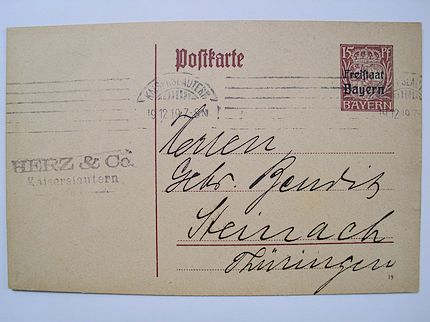 Postkarte
15 Pf
Freistaat
Bayern
BAYERN
KAISERSLAUTERN
19.12.19.7-8N
HERZ & Co.
Kaiserslautern
Herren
Gebr. Bendix
Steinach
Thüringen
19